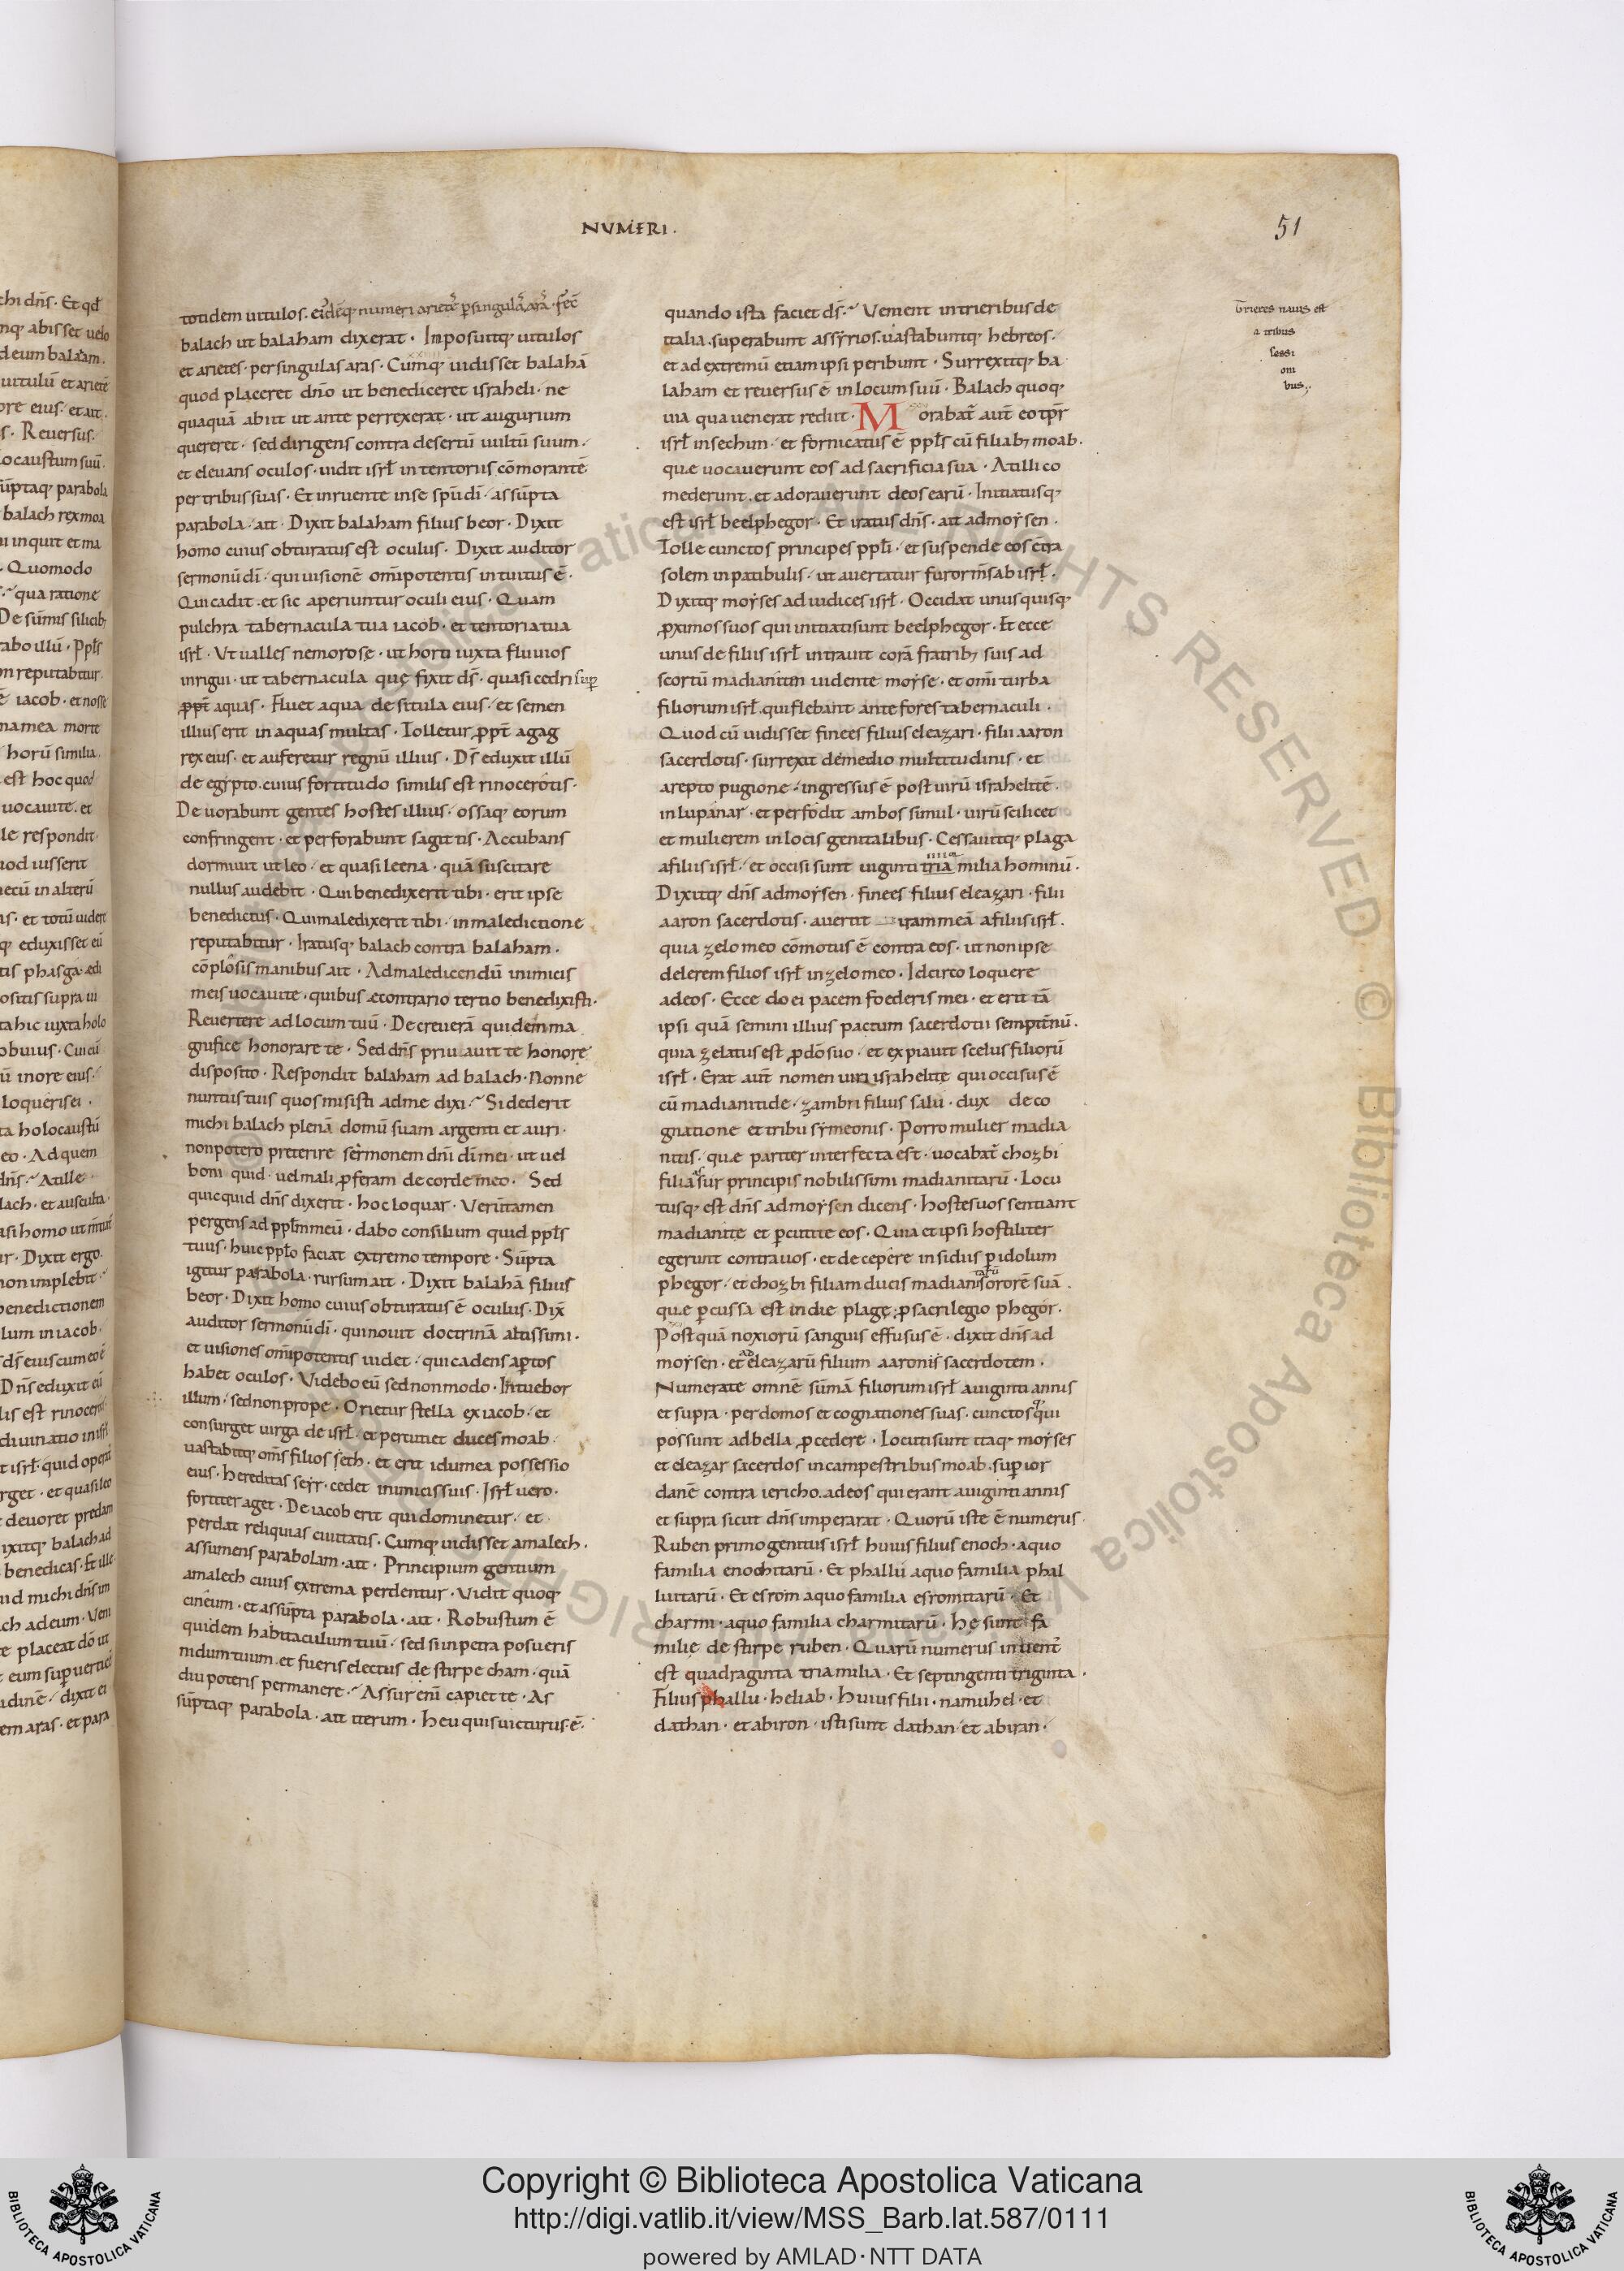 NUMERI.
51
totidem uitulos. eidẽq; numeri arietẽ ꝑsingulas aras. fec̃
balach ut balaham dixerat. Imposuitq; uitulos
et arietes. per singulas aras. Cumq; uidisset balahã
quod placeret dño ut benediceret israheli. ne
quaquã abiit ut ante perrexerat. ut augurium
quereret. sed dirigens contra desertũ uultũ suum.
et eleuans oculos. uidit isrł in tentoriis cõmorantẽ
per tribus suas. Et inruente in se spũ dĩ. assũpta
parabola. ait. Dixit balaham filius beor. Dixit
homo cuius obturatus est oculus. Dixit auditor
sermonũ dĩ. qui uisionẽ om̃ipotentis intuitus ẽ.
Qui cadit. et sic aperiuntur oculi eius. Quam
pulchra tabernacula tua iacob. et tentoria tua
isrł. Ut ualles nemorose. ut horti iuxta fluuios
inrigui. ut tabernacula quę fixit ds̃. quasi cedri sup̱
ꝓpt̃ aquas. Fluet aqua de situla eius. et semen
illius erit in aquas multas. Tolletur ꝓpt̃ agag
rex eius. et auferetur regnũ illius. Ds̃ eduxit illũ
de egypto. cuius fortitudo similis est rinocerotis.
Deuorabunt gentes hostes illius. ossaq; eorum
confringent. et perforabunt sagittis. Accubans
dormiuit ut leo. et quasi leena. quã suscitare
nullus audebit. Qui benedixerit tibi. erit ipse
benedictus. Qui maledixerit tibi. in maledictione
reputabitur. Iratusq; balach contra balaham.
cõplosis manibus ait. Ad maledicendũ inimicis
meis uocauite. quibus econtrario tertio benedixisti.
Reuertere ad locum tuũ. Decreuerã quidem ma
gnifice honorare te. Sed dñs priuauit te honore
disposito. Respondit balaham ad balach. Nonne
nuntiis tuis quos misisti ad me dixi. Si dederit
michi balach plenã domũ suam argenti et auri.
non potero preterire sermonem dñi dĩ mei. ut uel
boni quid. uel mali ꝓferam de corde meo. Sed
quicquid dñs dixerit. hoc loquar. Verũtamen
pergens ad ppłm meũ. dabo consilium quid ppłs
tuus. huic ppło faciat extremo tempore. Sũpta
igitur parabola. rursum ait. Dixit balahã filius
beor. Dixit homo cuius obturatus ẽ oculus. Dix̃
auditor sermonũ dĩ. qui nouit doctrinã altissimi.
et uisiones om̃ipotentis uidet. qui cadens aꝑtos
habet oculos. Videbo eũ sed non modo. Intuebor
illum. sed non prope. Orietur stella ex iacob. et
consurget uirga de isrł. et percutiet duces moab.
uastabitq; om̃s filios seth. et erit idumea possessio
eius. hereditas seyr. cedet inimicis suis. Isrł uero.
fortiter aget. De iacob erit qui dominetur. et
perdat reliquias ciuitatis. Cumq; uidisset amalech.
assumens parabolam. ait. Principium gentium
amalech cuius extrema perdentur. Vidit quoq;
cineum. et assũpta parabola. ait. Robustum ẽ
quidem habitaculum tuũ. sed si in petra posueris
nidum tuum. et fueris electus de stirpe cham. quã
diu poteris permanere. Assur enĩ capiet te. As
sũptaq; parabola. ait iterum. Heu quis uicturus ẽ.
quando ista faciet ds̃. Venient in trieribus de
italia. superabunt assyrios. uastabuntq; hebreos.
et ad extremũ etiam ipsi peribunt. Surrexitq; ba
laham et reuersus ẽ in locum suũ. Balach quoq;
uia qua uenerat rediit. Morabat̃ aut̃ eo tp̃r
isrł in sechim. et fornicatus ẽ ppłs cũ filiab; moab.
que uocauerunt eos ad sacrificia sua. At illi co
mederunt. et adorauerunt deos earũ. Initiatusq;
est isrł beelphegor. Et iratus dñs. ait ad moysen.
Tolle cunctos principes ppłi. et suspende eos cõtra
solem in patibulis. ut auertatur furor m̃s ab isrł.
Dixitq; moyses ad iudices isrł. Occidat unusquisq;
ꝓximos suos qui initiati sunt beelphegor. Et ecce
unus de filiis isrł intrauit corã fratrib; suis ad
scortũ madianitin uidente moyse. et om̃i turba
filiorum isrł. qui flebant ante fores tabernaculi.
Quod cũ uidisset finees filius eleazari. filii aaron
sacerdotis. surrexit de medio multitudinis. et
arepto pugione. ingressus ẽ post uirũ israhelitẽ
in lupanar. et perfodit ambos simul. uirũ scilicet
et mulierem in locis genitalibus. Cessauitq; plaga
a filiis isrł. et occisi sunt uiginti tria milia hominũ.
Dixitq; dñs ad moysen. finees filius eleazari. filii
aaron sacerdotis. auertit iram meã a filiis isrł.
quia zelo meo cõmotus ẽ contra eos. ut non ipse
delerem filios isrł in zelo meo. Idcirco loquere
ad eos. Ecce do ei pacem foederis mei. et erit tã
ipsi quã semini illius pactum sacerdotii sempit̃nũ.
quia zelatus est ꝓ dõ suo. et expiauit scelus filiorũ
isrł. Erat aut̃ nomen uiri israhelitę qui occisus ẽ
cũ madianitide. zambri filius salu. dux de co
gnatione et tribu symeonis. Porro mulier madia
nitis. quę pariter interfecta est. uocabat̃ chozbi
filia sur principis nobilissimi madianitarũ. Locu
tusq; est dñs ad moysen dicens. Hostes uos sentiant
madianite et ꝑcutite eos. Quia et ipsi hostiliter
egerunt contra uos. et decepere insidiis ꝑ idolum
phegor. et chozbi filiam ducis madianitarũ sororẽ suã.
quę ꝑcussa est in die plagę. ꝓ sacrilegio phegor.
Postquã noxiorũ sanguis effusus ẽ. dixit dñs ad
moysen. et ad eleazarũ filium aaronis sacerdotem.
Numerate omnẽ sũmã filiorum isrł a uiginti annis
et supra. per domos et cognationes suas. cunctos qui
possunt ad bella ꝓcedere. Locuti sunt itaq; moyses
et eleazar sacerdos in campestribus moab. suꝑ ior
danẽ contra iericho. ad eos qui erant a uiginti annis
et supra sicut dñs imperarat. Quorũ iste ẽ numerus.
Ruben primogenitus isrł huius filius enoch. a quo
familia enochitarũ. Et phallu a quo familia phal
luitarũ. Et esrom a quo familia esromitarũ. Et
charmi. a quo familia charmitarũ. Hę sunt fa
milię de stirpe ruben. Quarũ numerus inuent̃
est quadraginta tria milia. Et septingenti triginta.
Filius phallu. heliab. Huius filii. namuhel. et
dathan. et abiron. isti sunt dathan et abiran.
Trieres nauis est
a tribus
sessi
oni
bus.
Copyright © Biblioteca Apostolica Vaticana
http://digi.vatlib.it/view/MSS_Barb.lat.587/0111
powered by AMLAD·NTT DATA
BIBLIOTECA APOSTOLICA VATICANA
BIBLIOTECA APOSTOLICA VATICANA